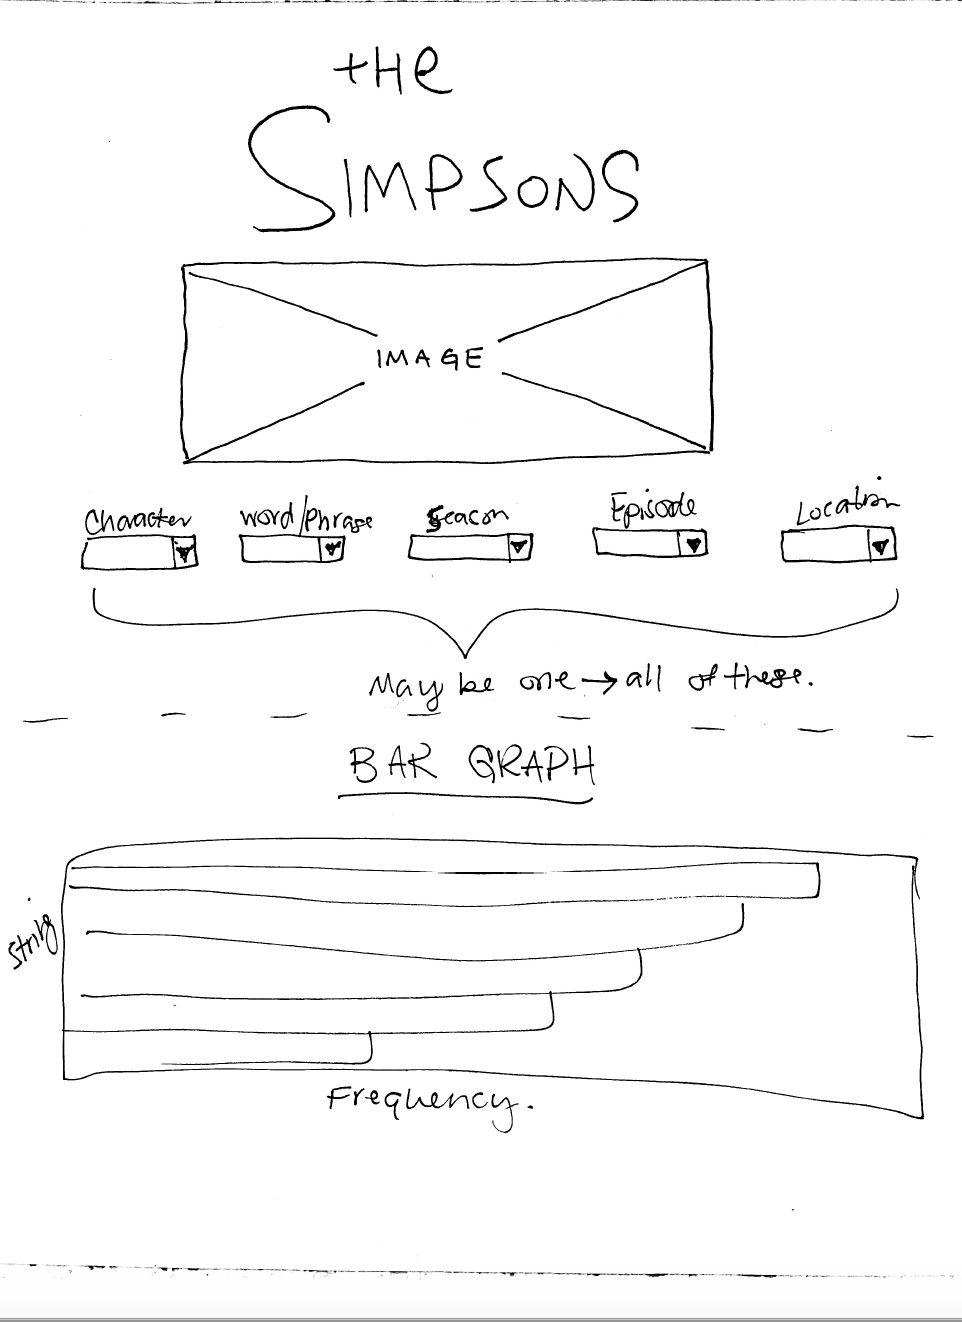 tHe
SIMPSONS
IMAGE
Character word/phrase Seacon Episode Location
May be one → all of these.
BAR GRAPH
string
Frequency.